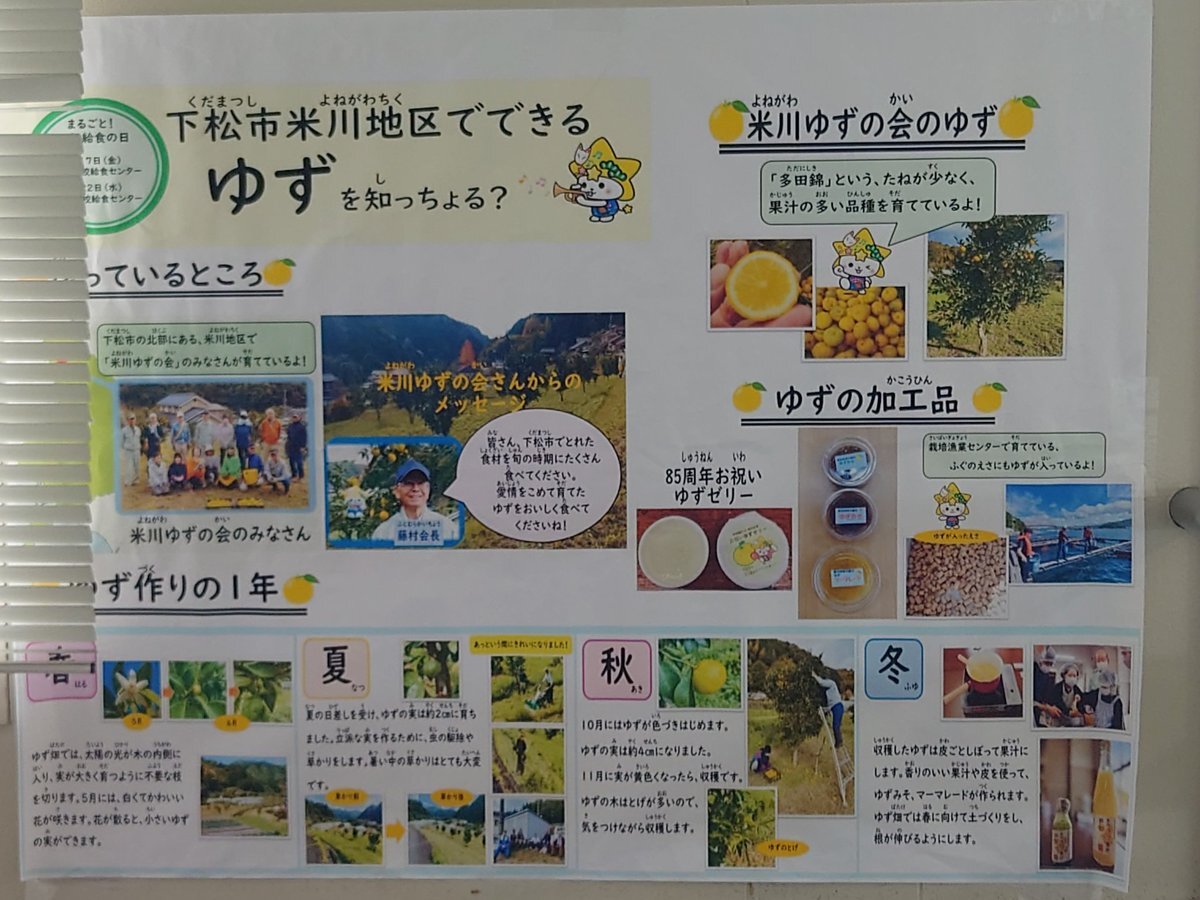 まるごと!
給食の日
7日(金)
校給食センター
2日(水)
校給食センター
下松市米川地区でできる
ゆずを知っちょる?
っているところ
下松市の北部にある、米川地区で
「米川ゆずの会」のみなさんが育てているよ!
米川ゆずの会のみなさん
米川ゆずの会さんからの
メッセージ
皆さん、下松市でとれた
食材を旬の時期にたくさん
食べてください。
愛情をこめて育てた
ゆずをおいしく食べて
くださいね!
藤村会長
米川ゆずの会のゆず
「多田錦」という、たねが少なく、
果汁の多い品種を育てているよ!
ゆずの加工品
85周年お祝い
ゆずゼリー
栽培漁業センターで育てている、
ふぐのえさにもゆずが入っているよ!
ゆずが入ったえさ
ゆず作りの1年
春
5月
6月
ゆず畑では、太陽の光が木の内側に
入り、実が大きく育つように不要な枝
を切ります。5月には、白くてかわいい
花が咲きます。花が散ると、小さいゆず
の実ができます。
夏
あっという間にきれいになりました!
夏の日差しを受け、ゆずの実は約2cmに育ち
ました。立派な実を作るために、虫の駆除や
草かりをします。暑い中の草かりはとても大変
です。
草かり前
草かり後
秋
10月にはゆずが色づきはじめます。
ゆずの実は約4cmになりました。
11月に実が黄色くなったら、収穫です。
ゆずの木はとげが多いので、
気をつけながら収穫します。
ゆずのとげ
冬
収穫したゆずは皮ごとしぼって果汁に
します。香りのいい果汁や皮を使って、
ゆずみそ、マーマレードが作られます。
ゆず畑では春に向けて土づくりをし、
根が伸びるようにします。